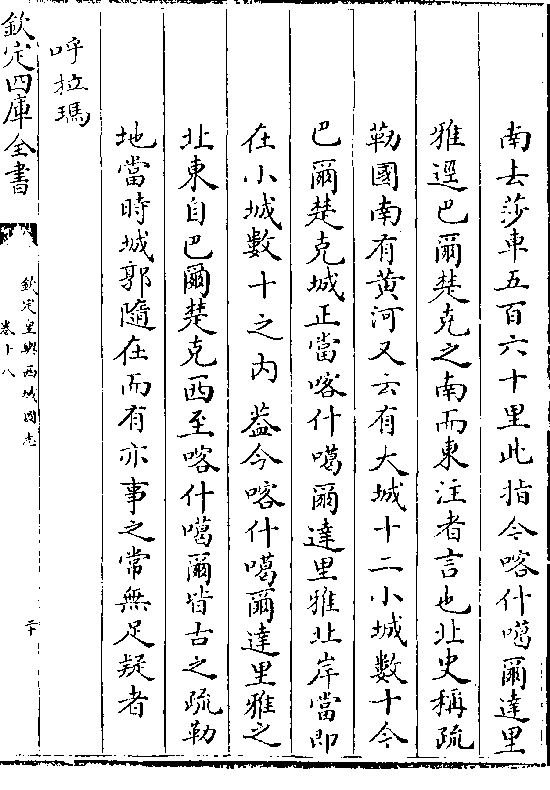 南去莎車五百六十里此指今喀什噶爾達里
雅逕巴爾楚克之南而東注者言也北史稱疏
勒國南有黃河又云有大城十二小城數十今
巴爾楚克城正當喀什噶爾達里雅北岸當即
在小城數十之内葢今喀什噶爾達里雅之
北東自巴爾楚克西至喀什噶爾皆古之疏勒
地當時城郭隨在而有亦事之常無足疑者
呼拉瑪
欽定四庫全書
欽定皇輿西域圖志
卷十八
二十